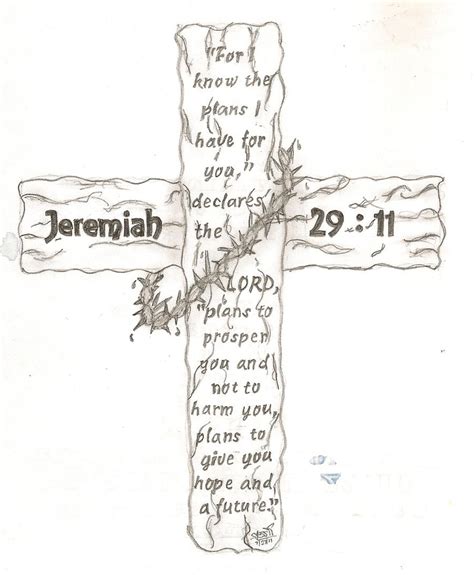 "For I
know the
plans I
have for
you,"
declares
Jeremiah the 29:11
LORD,
"plans to
prosper
you and
not to
harm you,
plans to
give you
hope and
a future."